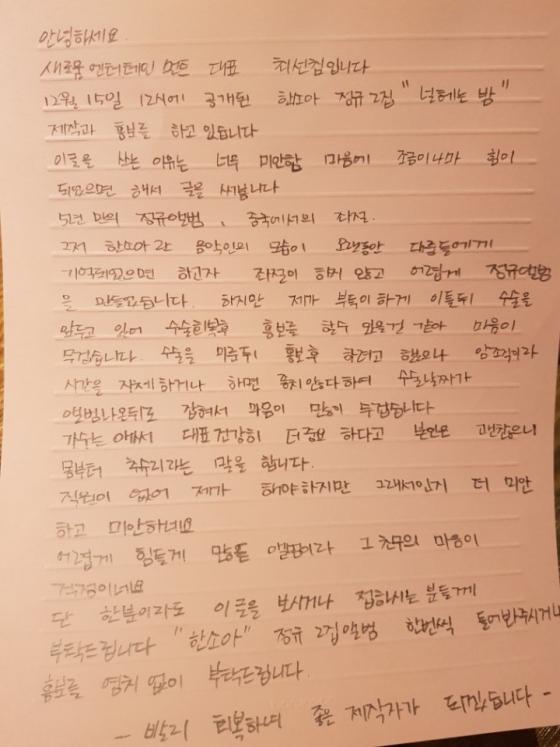 안녕하세요.
새로움 엔터테인먼트 대표 최선칩입니다
12월 15일 12시에 공개된 한소아 정규 2집 "널헤는 밤"
제작과 홍보를 하고 있습니다
이글을 쓰는 이유는 너무 미안함 마음에 조금이나마 힘이
되었으면 해서 글을 써봅니다
5년 만의 정규앨범, 중국에서의 좌절.
그저 한소아란 음악인의 모습이 오랫동안 대중들에게
기억되었으면 하고자 좌절이 하지 않고 어렵게 정규앨범
을 만들었습니다. 하지만 제가 부득이하게 이틀뒤 수술을
앞두고 있어 수술회복후 홍보를 할수 있을것 같아 마음이
무겁습니다. 수술을 미룬뒤 홍보후 하려고 했으나 암소직이라
시간을 지체하거나 하면 좋지않다하여 수술날짜가
앨범나온뒤로 잡혀서 마음이 많이 무겁습니다
가수는 애써 대표 건강히 더 중요 하다고 본인은 괜찮으니
몸부터 추수리라는 말을 합니다.
직원이 없어 제가 해야하지만 그래서인지 더 미안
하고 미안하네요
어렵게 힘들게 만든 앨범이라 그 친구의 마음이
걱정이네요
단 한분이라도 이글을 보시거나 접하시는 분들게
부탁드립니다 "한소아" 정규 2집앨범 한번씩 들어봐주시거나
홍보를 염치 없이 부탁드립니다.
- 빨리 회복하여 좋은 제작자가 되겠습니다 -